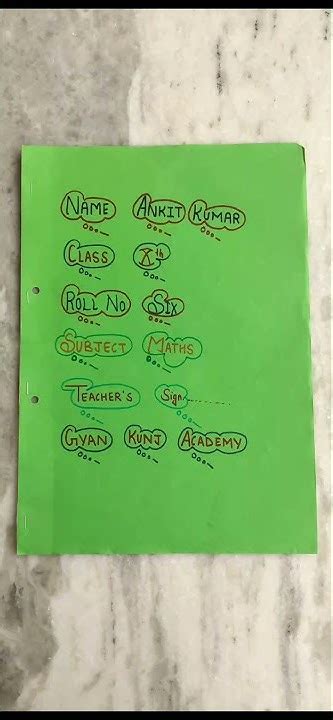 NAME ANKIT KUMAR
CLASS Xth
ROLL NO SIX
SUBJECT MATHS
TEACHER'S Sign..........
GYAN KUNJ ACADEMY